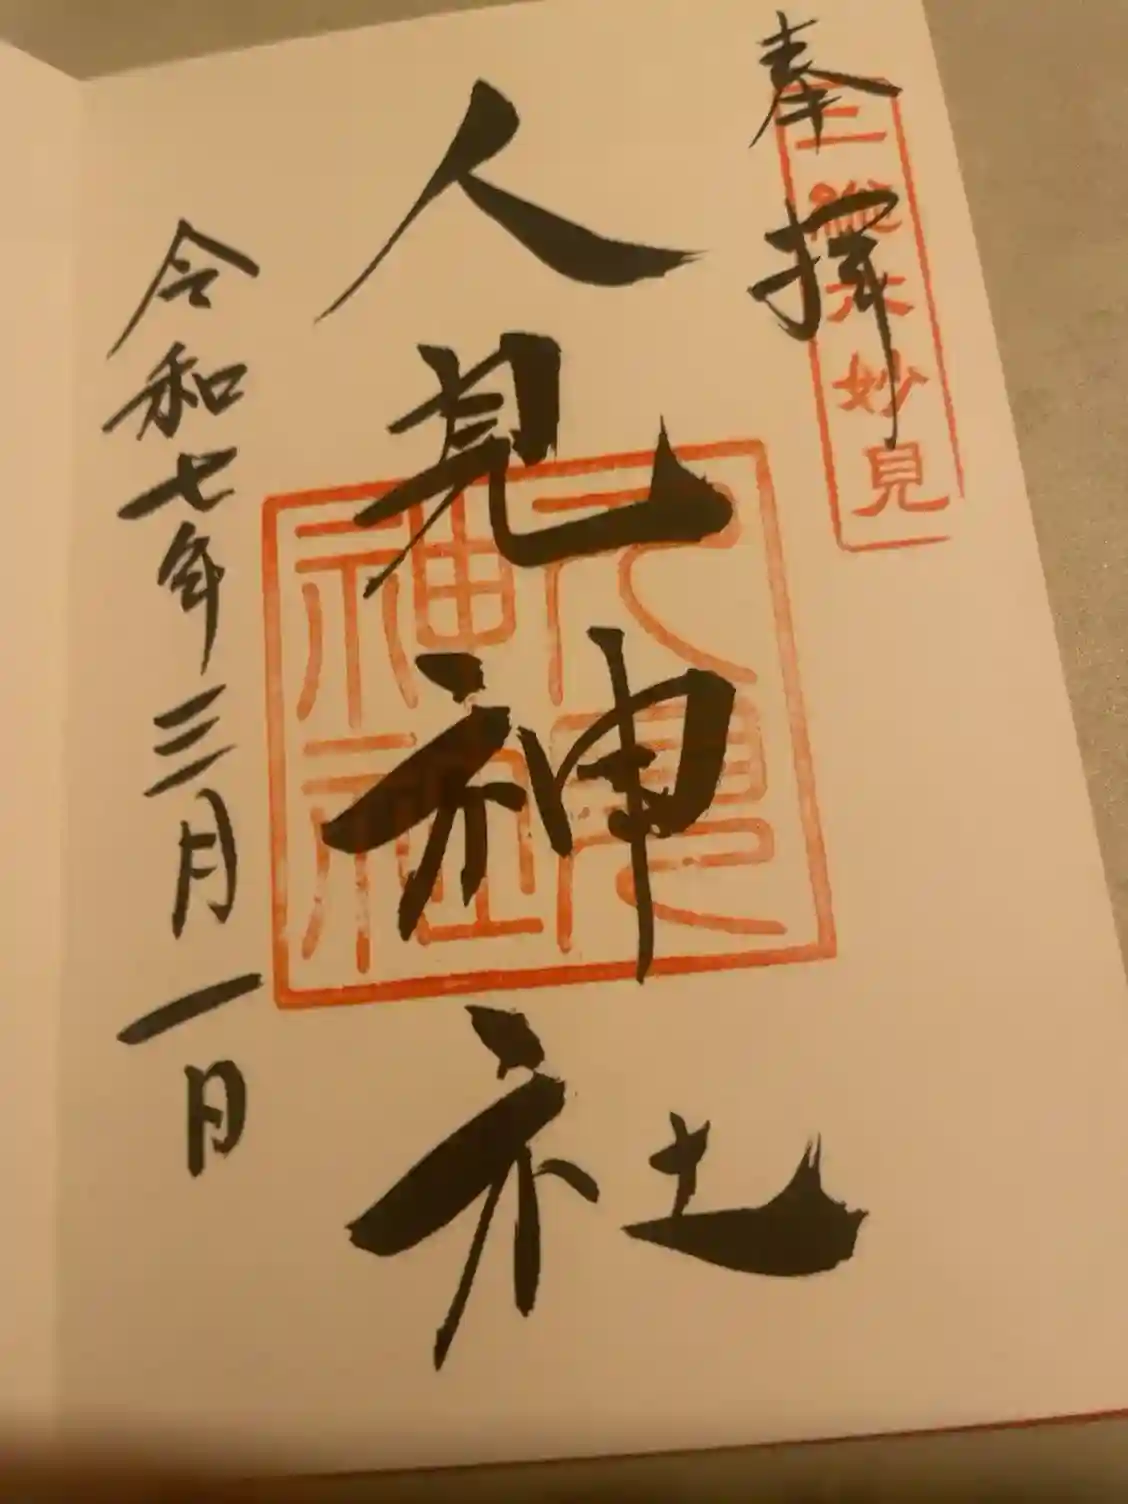 奉拝
上総大妙見
人見神社
人見
神社
令和七年三月一日